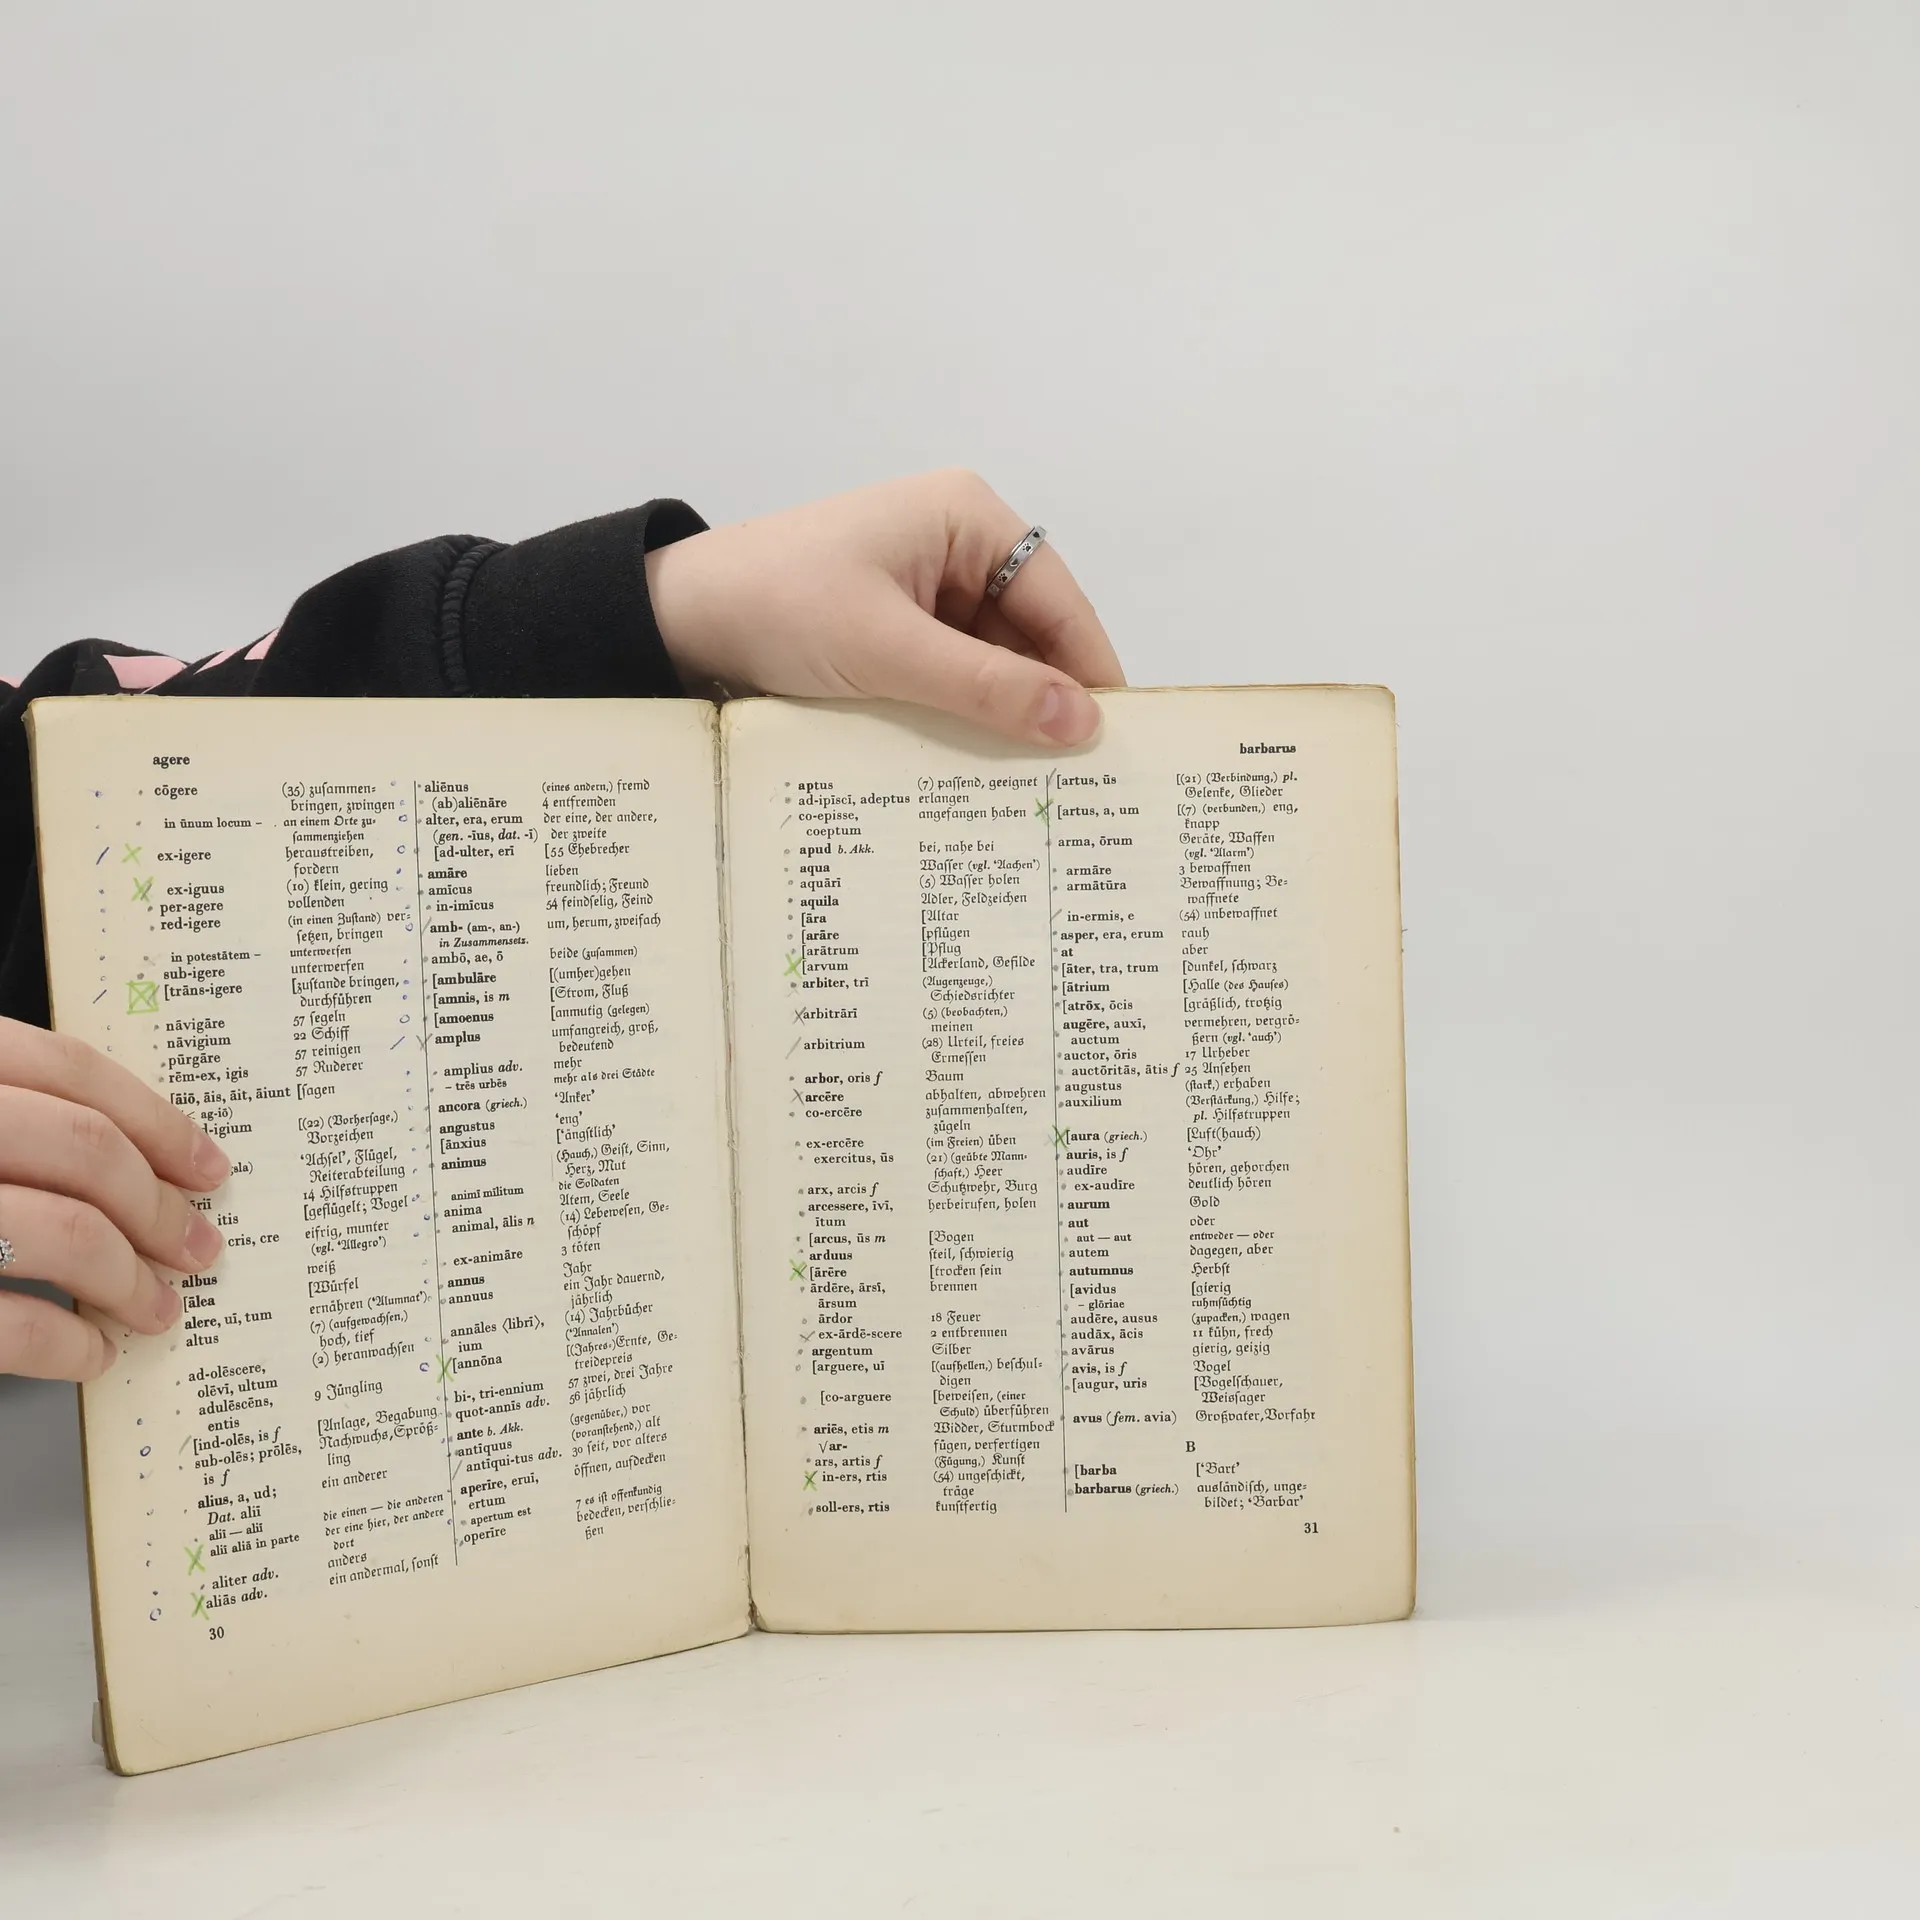 agere
cōgere (35) zusammen=
bringen, zwingen
in ūnum locum – an einem Orte zu=
sammenziehen
ex-igere heraustreiben,
fordern
ex-iguus (10) klein, gering
per-agere vollenden
red-igere (in einen Zustand) ver=
setzen, bringen
in potestātem – unterwerfen
sub-igere unterwerfen
[trāns-igere [zustande bringen,
durchführen
nāvigāre 57 segeln
nāvigium 22 Schiff
pūrgāre 57 reinigen
rēm-ex, igis 57 Ruderer
[āiō, āis, āit, āiunt [sagen
ag-iō)
d-igium [(22) (Vorhersage,)
Vorzeichen
‘Achsel’, Flügel,
Reiterabteilung
14 Hilfstruppen
itis [geflügelt; Vogel
cris, cre eifrig, munter
(vgl. ‘Allegro’)
albus weiß
[ālea [Würfel
alere, uī, tum ernähren (‘Alumnat’)
altus (7) (aufgewachsen,)
hoch, tief
ad-olēscere, (2) heranwachsen
olēvī, ultum
adulēscēns, 9 Jüngling
entis
[ind-olēs, is f [Anlage, Begabung
sub-olēs; prōlēs, Nachwuchs, Spröß=
is f ling
alius, a, ud; ein anderer
Dat. aliī
aliī — aliī die einen — die anderen
aliī aliā in parte der eine hier, der andere
dort
aliter adv. anders
aliās adv. ein andermal, sonst
30
aliēnus (eines andern,) fremd
(ab)aliēnāre 4 entfremden
alter, era, erum der eine, der andere,
(gen. -īus, dat. -ī) der zweite
[ad-ulter, erī [55 Ehebrecher
amāre lieben
amīcus freundlich; Freund
in-imīcus 54 feindselig, Feind
amb- (am-, an-) um, herum, zweifach
in Zusammensetz.
ambō, ae, ō beide (zusammen)
[ambulāre [(umher)gehen
[amnis, is m [Strom, Fluß
[amoenus [anmutig (gelegen)
amplus umfangreich, groß,
bedeutend
amplius adv. mehr
– trēs urbēs mehr als drei Städte
ancora (griech.) ‘Anker’
angustus ‘eng’
[ānxius [‘ängstlich’
animus (Hauch,) Geist, Sinn,
Herz, Mut
animī mīlitum die Soldaten
anima Atem, Seele
animal, ālis n (14) Lebewesen, Ge=
schöpf
ex-animāre 3 töten
annus Jahr
annuus ein Jahr dauernd,
jährlich
annāles ⟨librī⟩, (14) Jahrbücher
ium (‘Annalen’)
[annōna [(Jahres=)Ernte, Ge=
treidepreis
bi-, tri-ennium 57 zwei, drei Jahre
quot-annīs adv. 56 jährlich
ante b. Akk. (gegenüber,) vor
antīquus (voranstehend,) alt
antīqui-tus adv. 30 seit, vor alters
aperīre, eruī, öffnen, aufdecken
ertum
apertum est 7 es ist offenkundig
operīre bedecken, verschlie=
ßen
barbarus
aptus (7) passend, geeignet
ad-ipīscī, adeptus erlangen
co-episse, angefangen haben
coeptum
apud b. Akk. bei, nahe bei
aqua Wasser (vgl. ‘Aachen’)
aquārī (5) Wasser holen
aquila Adler, Feldzeichen
[āra [Altar
[arāre [pflügen
[arātrum [Pflug
[arvum [Ackerland, Gefilde
arbiter, trī (Augenzeuge,)
Schiedsrichter
arbitrārī (5) (beobachten,)
meinen
arbitrium (28) Urteil, freies
Ermessen
arbor, oris f Baum
arcēre abhalten, abwehren
co-ercēre zusammenhalten,
zügeln
ex-ercēre (im Freien) üben
exercitus, ūs (21) (geübte Mann=
schaft,) Heer
arx, arcis f Schutzwehr, Burg
arcessere, īvī, herbeirufen, holen
ītum
[arcus, ūs m [Bogen
arduus steil, schwierig
[ārēre [trocken sein
ārdēre, ārsī, brennen
ārsum
ārdor 18 Feuer
ex-ārdē-scere 2 entbrennen
argentum Silber
[arguere, uī [(aufhellen,) beschul=
digen
[co-arguere [beweisen, (einer
Schuld) überführen
ariēs, etis m Widder, Sturmbock
√ar- fügen, verfertigen
ars, artis f (Fügung,) Kunst
in-ers, rtis (54) ungeschickt,
träge
soll-ers, rtis kunstfertig
[artus, ūs [(21) (Verbindung,) pl.
Gelenke, Glieder
[artus, a, um [(7) (verbunden,) eng,
knapp
arma, ōrum Geräte, Waffen
(vgl. ‘Alarm’)
armāre 3 bewaffnen
armātūra Bewaffnung; Be=
waffnete
in-ermis, e (54) unbewaffnet
asper, era, erum rauh
at aber
[āter, tra, trum [dunkel, schwarz
[ātrium [Halle (des Hauses)
[atrōx, ōcis [gräßlich, trotzig
augēre, auxī, vermehren, vergrö=
auctum ßern (vgl. ‘auch’)
auctor, ōris 17 Urheber
auctōritās, ātis f 25 Ansehen
augustus (stark,) erhaben
auxilium (Verstärkung,) Hilfe;
pl. Hilfstruppen
[aura (griech.) [Luft(hauch)
auris, is f ‘Ohr’
audīre hören, gehorchen
ex-audīre deutlich hören
aurum Gold
aut oder
aut — aut entweder — oder
autem dagegen, aber
autumnus Herbst
[avidus [gierig
– glōriae ruhmsüchtig
audēre, ausus (zupacken,) wagen
audāx, ācis 11 kühn, frech
avārus gierig, geizig
avis, is f Vogel
[augur, uris [Vogelschauer,
Weissager
avus (fem. avia) Großvater, Vorfahr
B
[barba [‘Bart’
barbarus (griech.) ausländisch, unge=
bildet; ‘Barbar’
31